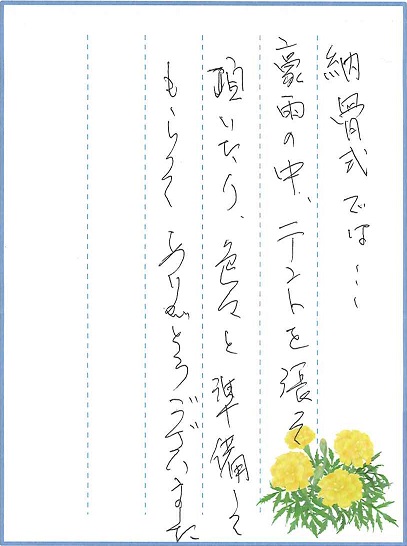 納骨式では…
豪雨の中、テントを張って
頂いたり、色々と準備して
もらって ありがとうございました